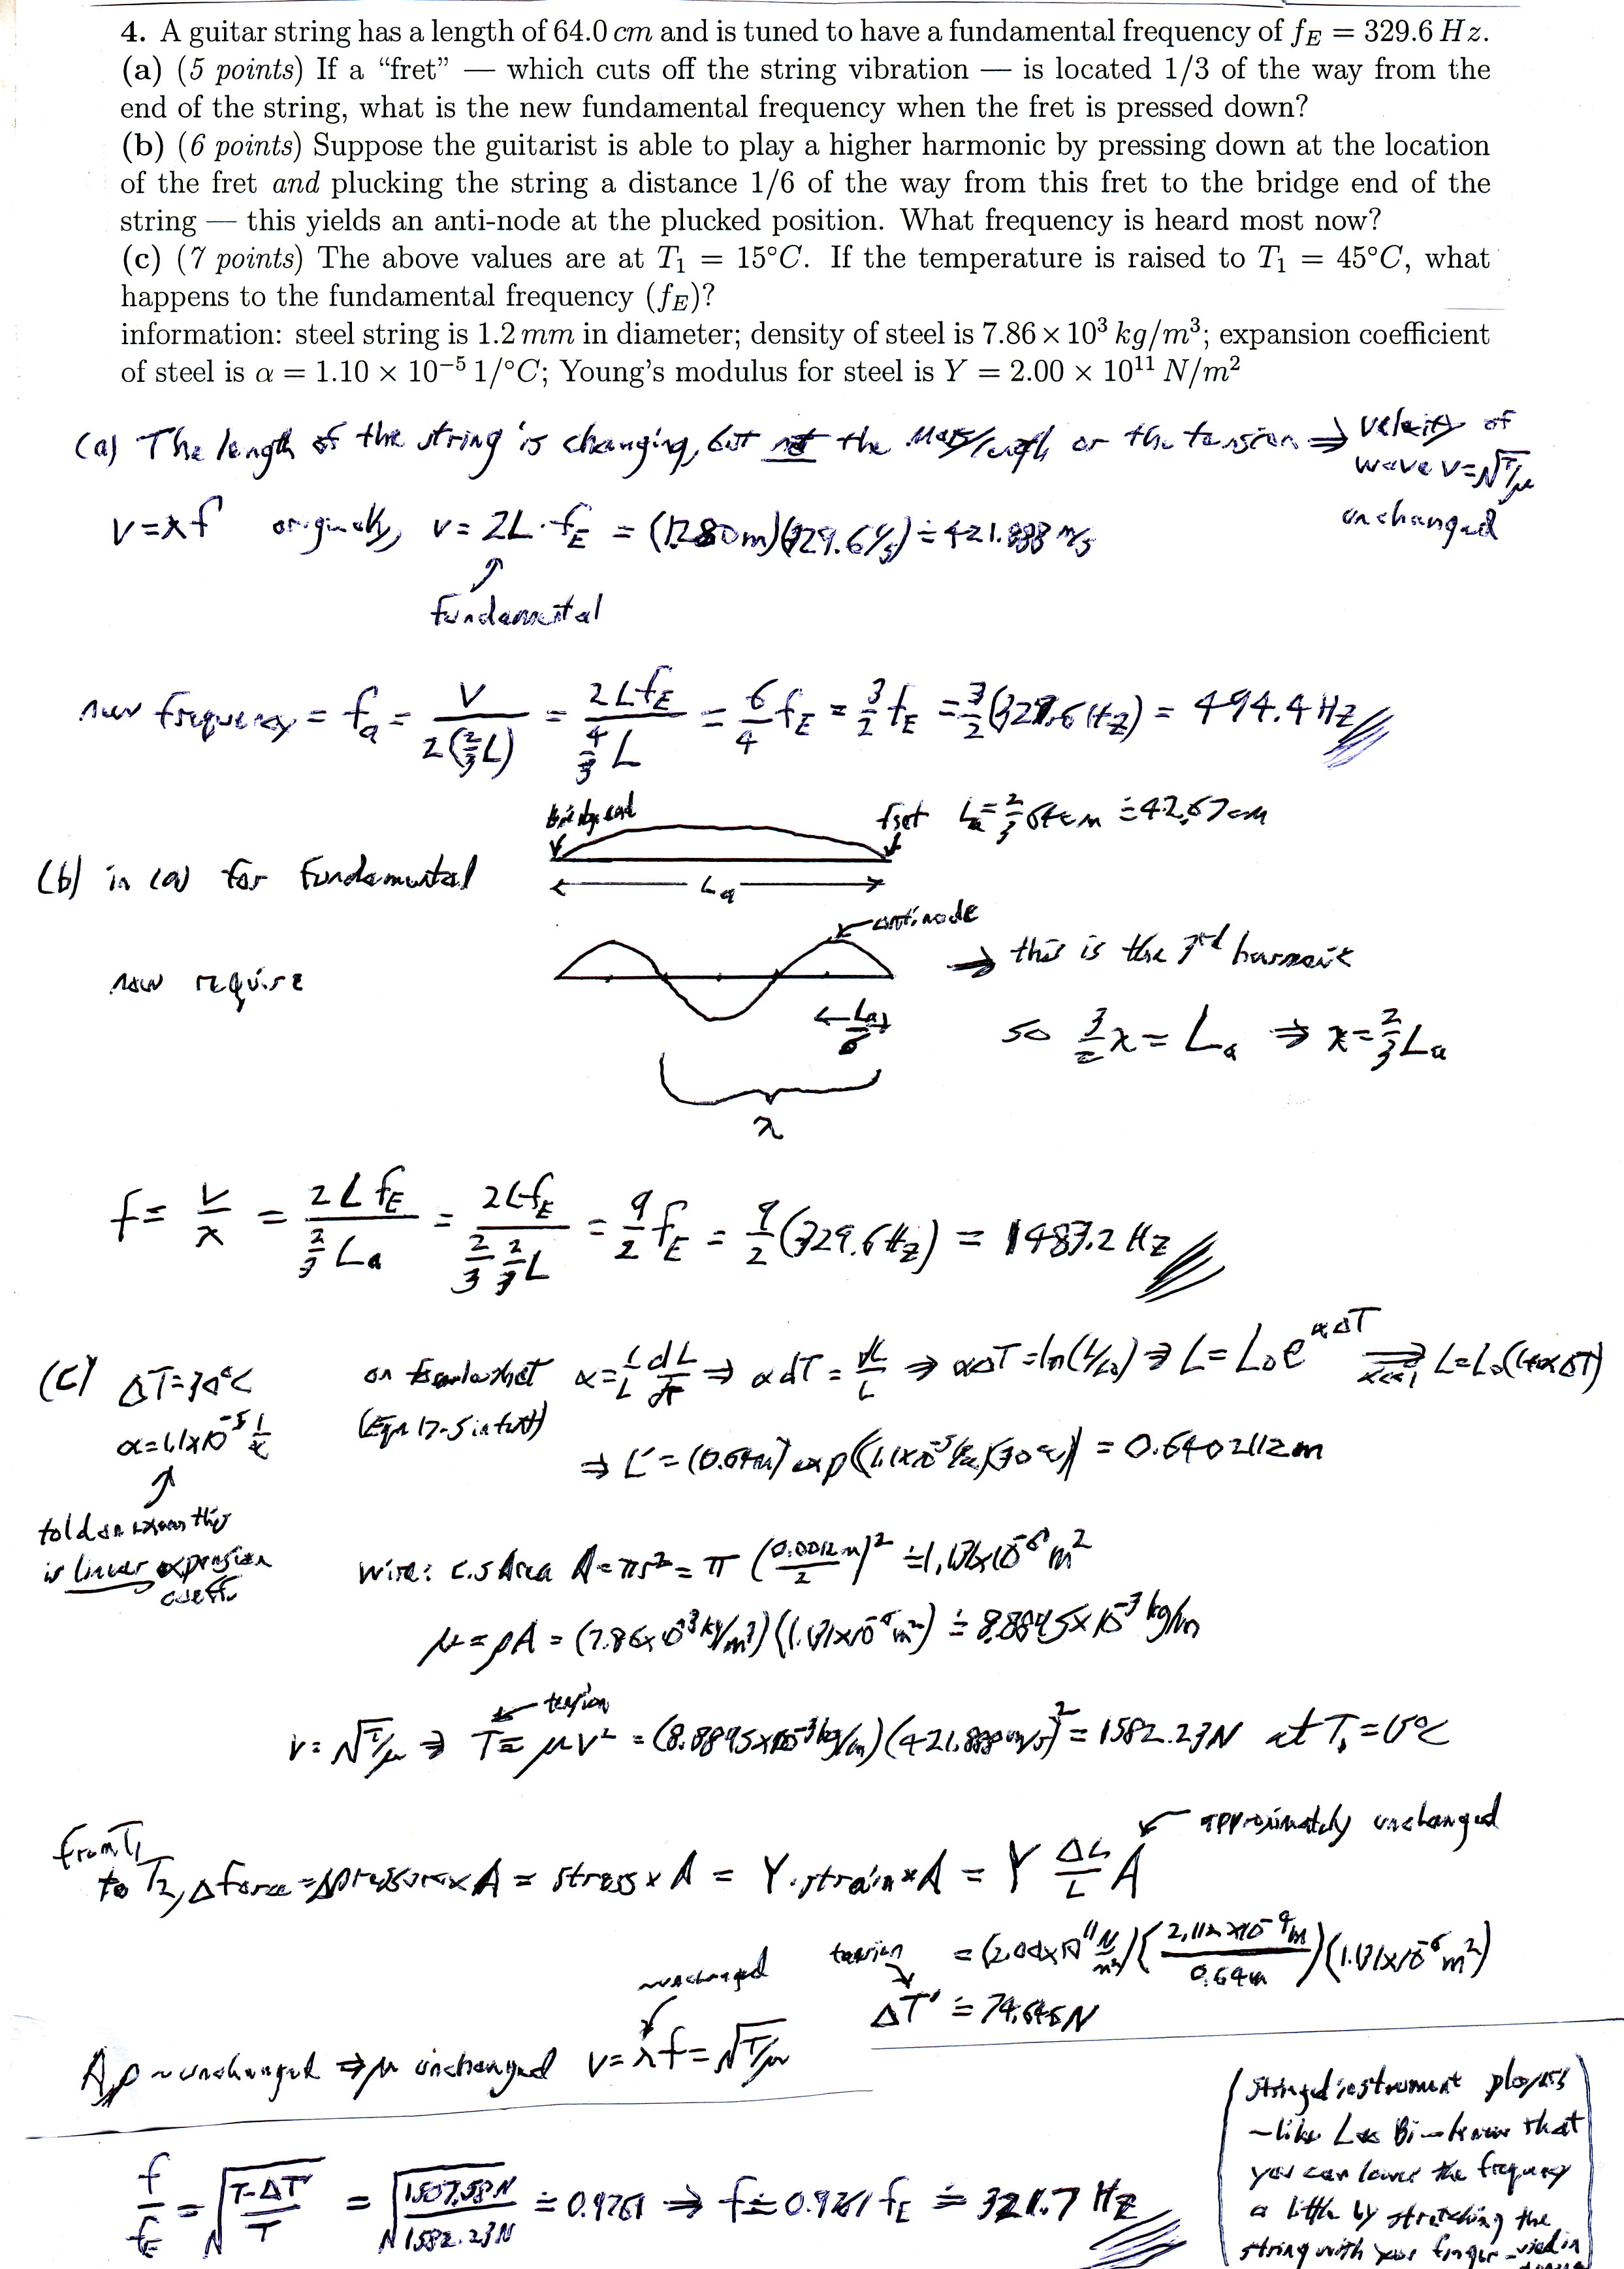 4. A guitar string has a length of 64.0 cm and is tuned to have a fundamental frequency of f_E = 329.6 Hz.
(a) (5 points) If a “fret” — which cuts off the string vibration — is located 1/3 of the way from the
end of the string, what is the new fundamental frequency when the fret is pressed down?
(b) (6 points) Suppose the guitarist is able to play a higher harmonic by pressing down at the location
of the fret and plucking the string a distance 1/6 of the way from this fret to the bridge end of the
string — this yields an anti-node at the plucked position. What frequency is heard most now?
(c) (7 points) The above values are at T₁ = 15°C. If the temperature is raised to T₁ = 45°C, what
happens to the fundamental frequency (f_E)?
information: steel string is 1.2 mm in diameter; density of steel is 7.86 × 10³ kg/m³; expansion coefficient
of steel is α = 1.10 × 10⁻⁵ 1/°C; Young’s modulus for steel is Y = 2.00 × 10¹¹ N/m²
(a) The length of the string is changing, but not the Mass/length or the tension ⇒ velocity of
wave v=√T/μ
unchanged
v=λf originally, v = 2L·f_E = (1.280m)(329.6 1/s) ≐ 421.888 m/s
↑
fundamental
new frequency = f_a = v/2(2/3 L) = 2Lf_E/(4/3 L) = 6/4 f_E = 3/2 f_E = 3/2 (329.6 Hz) = 494.4 Hz
bridge end fret L_a = 2/3 64cm ≐ 42.67cm
(b) in (a) for fundamental
← L_a →
antinode
now require ⇒ this is the 3rd harmonic
← L_a/6 →
so 3/2 λ = L_a ⇒ λ = 2/3 L_a
λ
f = v/λ = 2Lf_E/(2/3 L_a) = 2Lf_E/(2/3 2/3 L) = 9/2 f_E = 9/2 (329.6 Hz) = 1483.2 Hz
(c) ΔT=30°C on formula sheet α = 1/L dL/dT ⇒ αdT = dL/L ⇒ αΔT = ln(L/L₀) ⇒ L = L₀e^αΔT ⇒ L=L₀(1+αΔT)
(Eqn 17-5 in text)
α=1.1x10⁻⁵ 1/°C
⇒ L' = (0.64m) exp((1.1x10⁻⁵ 1/°C)(30°C)) = 0.6402112m
↑
told on exam this
is linear expansion
coeff.
wire: c.s Area A = πr² = π (0.0012m/2)² ≐ 1.131x10⁻⁶ m²
μ = ρA = (7.86x10³ kg/m³)(1.131x10⁻⁶ m²) ≐ 8.8895x10⁻³ kg/m
tension
v = √T/μ ⇒ T = μv² = (8.8895x10⁻³ kg/m)(421.888 m/s)² = 1582.23N at T₁=15°C
approximately unchanged
from T₁
to T₂, Δforce = Δpressure x A = stress x A = Y·strain x A = Y ΔL/L A
= (2.00x10¹¹ N/m²)(2.112x10⁻⁴m/0.64m)(1.131x10⁻⁶ m²)
tension
ΔT' ≐ 74.646N
~unchanged
A,ρ ~unchanged ⇒ μ unchanged v = λf = √T/μ
f/f_E = √(T-ΔT'/T) = √(1507.58N/1582.23N) ≐ 0.9761 ⇒ f ≐ 0.9761 f_E ≐ 321.7 Hz
(stringed instrument players
know that
you can lower the frequency
a little by stretching the
string with your finger - used in